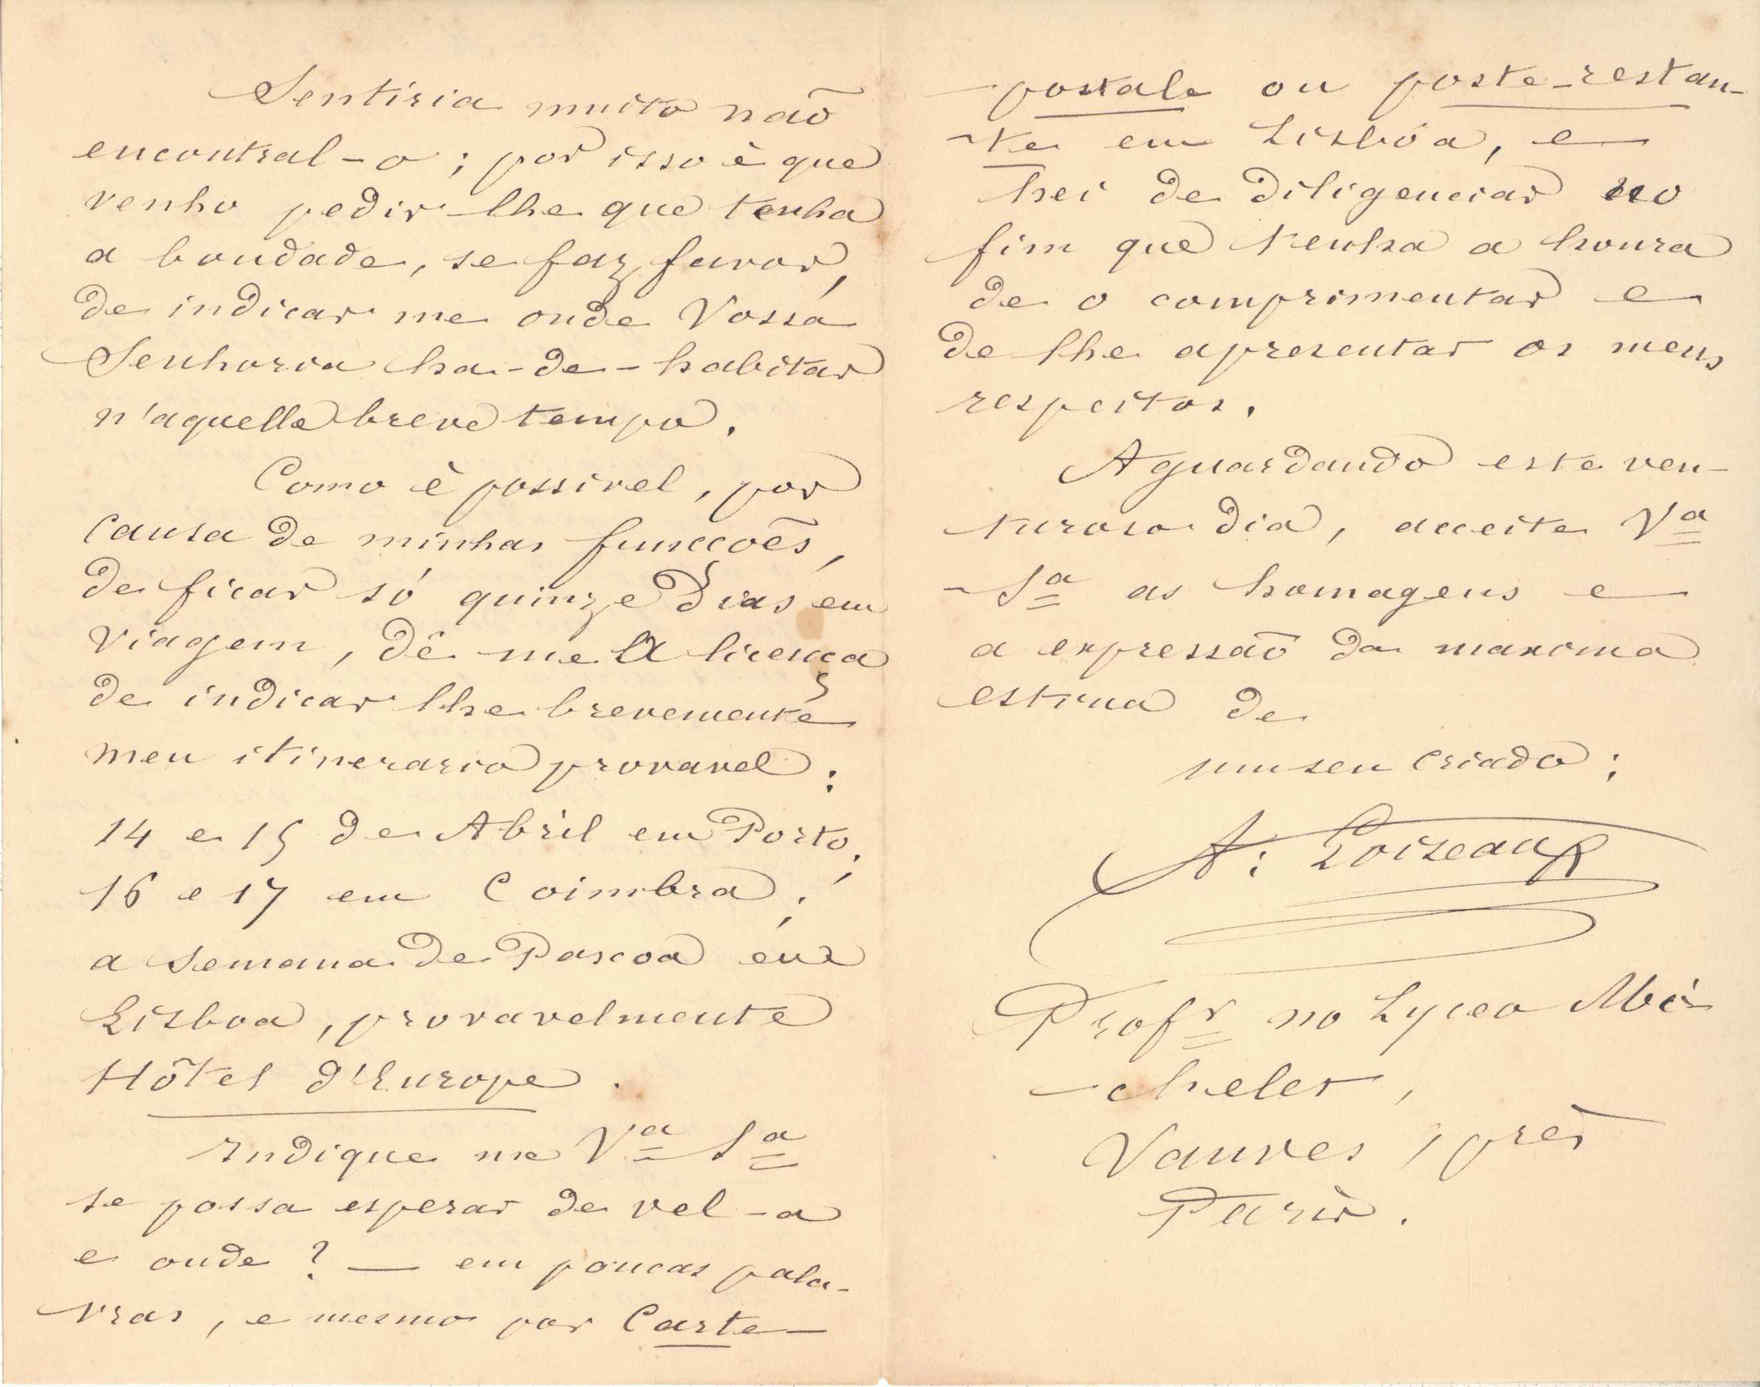 Sentiria muito não
encontral-o ; por isso è que
venho pedir-lhe que tenha
a bondade, se faz favor,
de indicar me onde Vossa
Senhoria ha-de-habitar
n'aquelle breve tempo.
Como è possivel, por
causa de minhas funcções,
de ficar só quinze dias em
viagem, dê me a licença
de indicar lhe brevemente
meu itinerario provavel :
14 e 15 de Abril em Porto;
16 e 17 em Coimbra ;
a semana de Pascoa em
Lisboa, provavelmente
Hôtel d'Europe .
Indique me Vª Sª
se possa esperar de vel-a
e onde ? — em poucas pala-
vras, e mesmo por Carte-
-postale ou poste-restan-
-te em Lisbôa, e
hei de diligenciar no
fim que tenha a honra
de o comprimentar e
de lhe apresentar os meus
respeitos.
Aguardando este ven-
turoso dia, acceite Vª
-Sª as homagens e
a expressão da maxima
estima de
um seu criado ;
A. Loizeaux
Profr no Lyceo Mi-
-chelet,
Vanves, près
Paris.